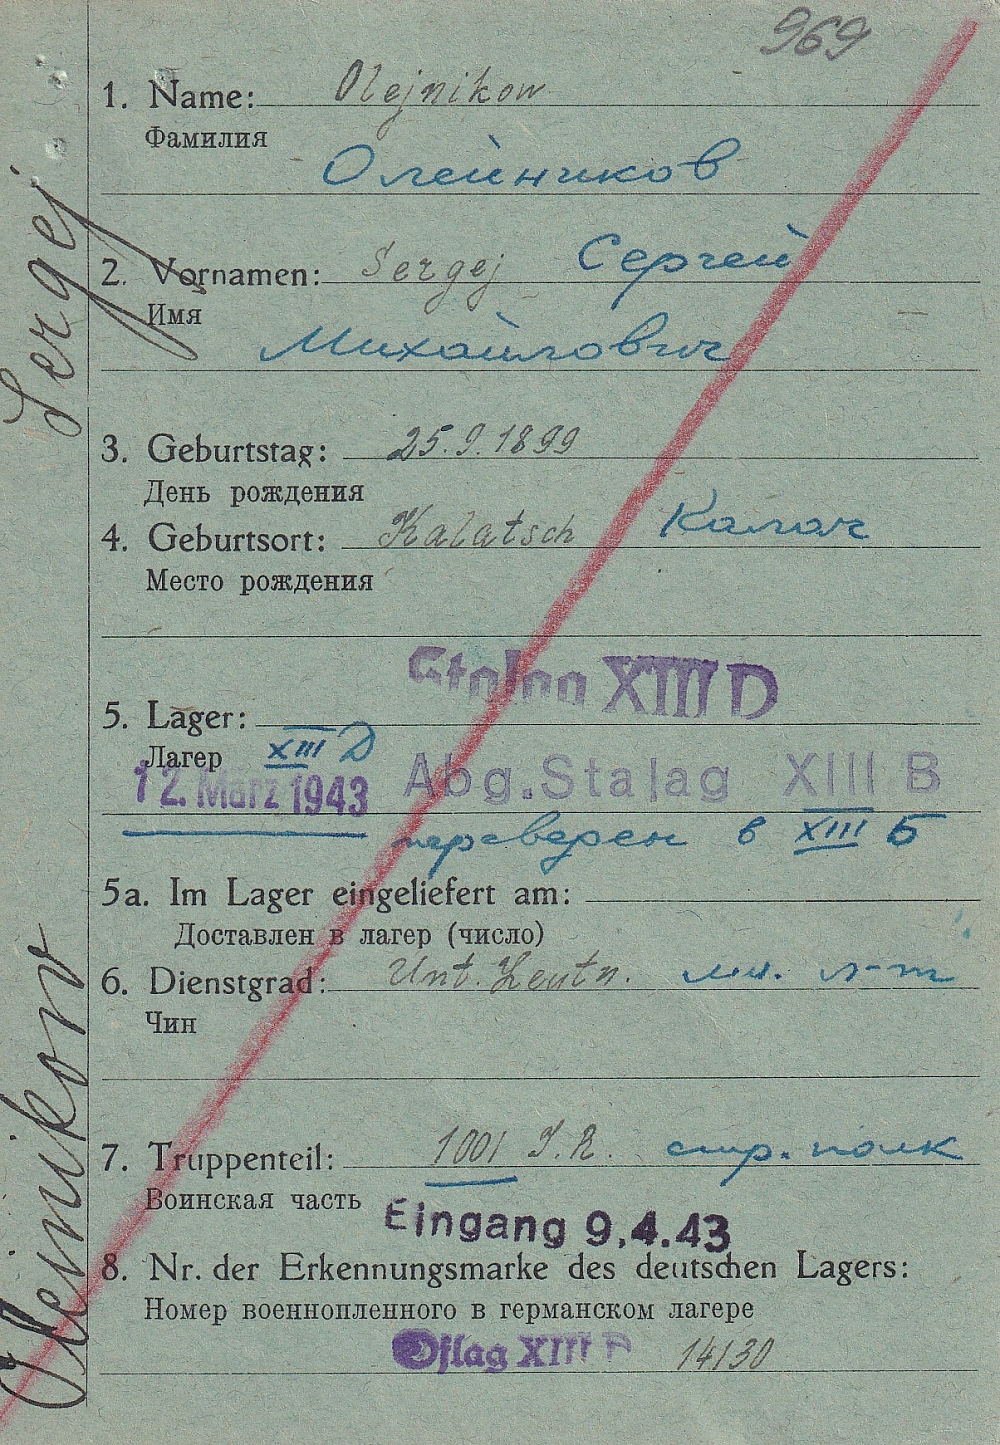 969
1. Name: Olejnikow
Фамилия
Олейников
2. Vornamen: Sergej Сергей
Имя
Михайлович
3. Geburtstag: 25.9.1899
День рождения
4. Geburtsort: Kalatsch Калач
Место рождения
Stalag XIII D
5. Lager:
Лагер XIII D
12. März 1943 Abg. Stalag XIII B
переведен в XIII Б
5a. Im Lager eingeliefert am:
Доставлен в лагер (число)
6. Dienstgrad: Unt. Leutn. мл. л-т
Чин
7. Truppenteil: 1001 I.R. стр. полк
Воинская часть
Eingang 9.4.43
8. Nr. der Erkennungsmarke des deutschen Lagers:
Номер военнопленного в германском лагере
Oflag XIII 14130
Oleinikov Sergej